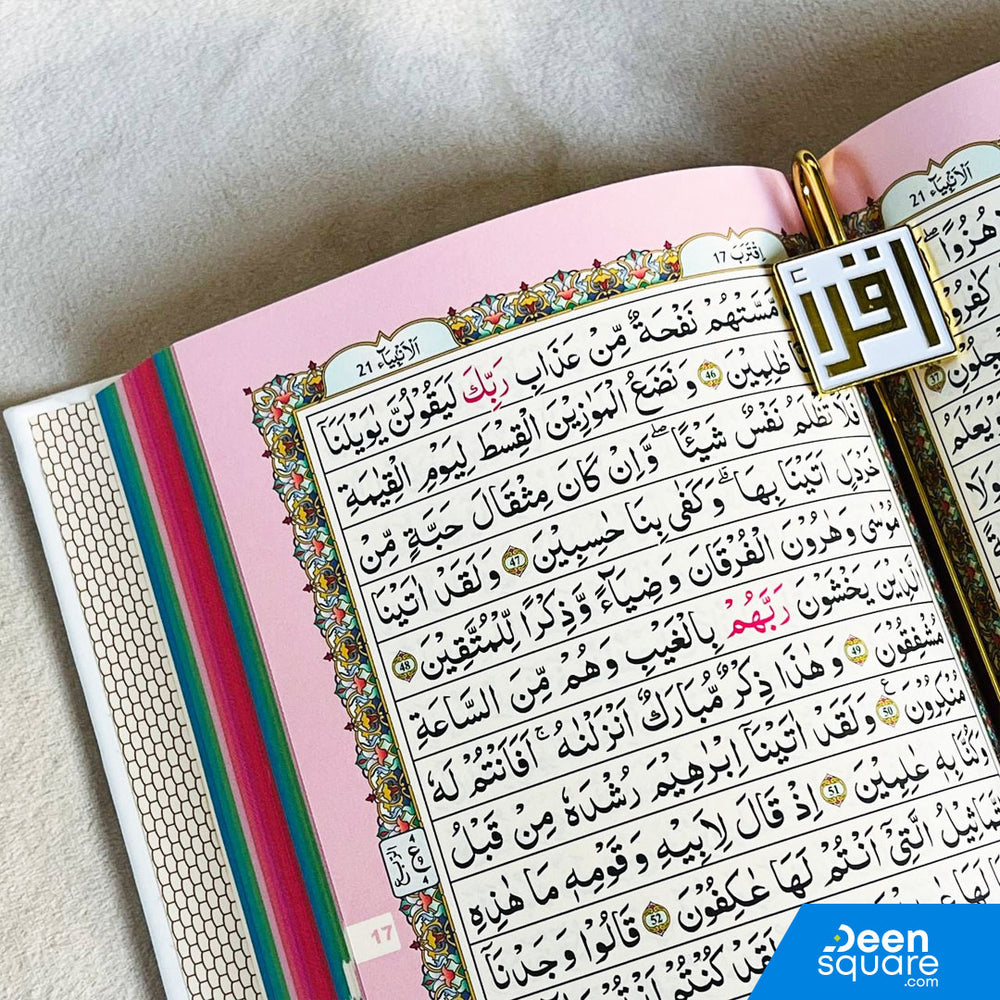 اَلْاَنْۢبِيَآء 21
هُزُوًا
37
اِقْتَرَبَ 17
اَلْاَنْۢبِيَآء 21
اقرأ
مَّسَّتْهُمْ نَفْحَةٌ مِّنْ عَذَابِ رَبِّكَ لَيَقُوْلُنَّ يٰوَيْلَنَاۤ
ظٰلِمِيْنَ 46 وَنَضَعُ الْمَوَازِيْنَ الْقِسْطَ لِيَوْمِ الْقِيٰمَةِ
فَلَا تُظْلَمُ نَفْسٌ شَيْـًٔا ؕ وَاِنْ كَانَ مِثْقَالَ حَبَّةٍ مِّنْ
خَرْدَلٍ اَتَيْنَا بِهَا ؕ وَكَفٰى بِنَا حٰسِبِيْنَ 47 وَلَقَدْ اٰتَيْنَا
مُوْسٰى وَهٰرُوْنَ الْفُرْقَانَ وَضِيَآءً وَّذِكْرًا لِّلْمُتَّقِيْنَ 48
الَّذِيْنَ يَخْشَوْنَ رَبَّهُمْ بِالْغَيْبِ وَهُمْ مِّنَ السَّاعَةِ
مُشْفِقُوْنَ 49 وَهٰذَا ذِكْرٌ مُّبٰرَكٌ اَنْزَلْنٰهُ ؕ اَفَاَنْتُمْ لَهٗ
مُنْكِرُوْنَ 50 وَلَقَدْ اٰتَيْنَاۤ اِبْرٰهِيْمَ رُشْدَهٗ مِنْ قَبْلُ
وَكُنَّا بِهٖ عٰلِمِيْنَ 51 اِذْ قَالَ لِاَبِيْهِ وَقَوْمِهٖ مَا هٰذِهِ
التَّمَاثِيْلُ الَّتِيْۤ اَنْتُمْ لَهَا عٰكِفُوْنَ 52 قَالُوْا وَجَدْنَاۤ
لَقَدْ كُنْتُمْ اَنْتُمْ
17
Deen
square
.com